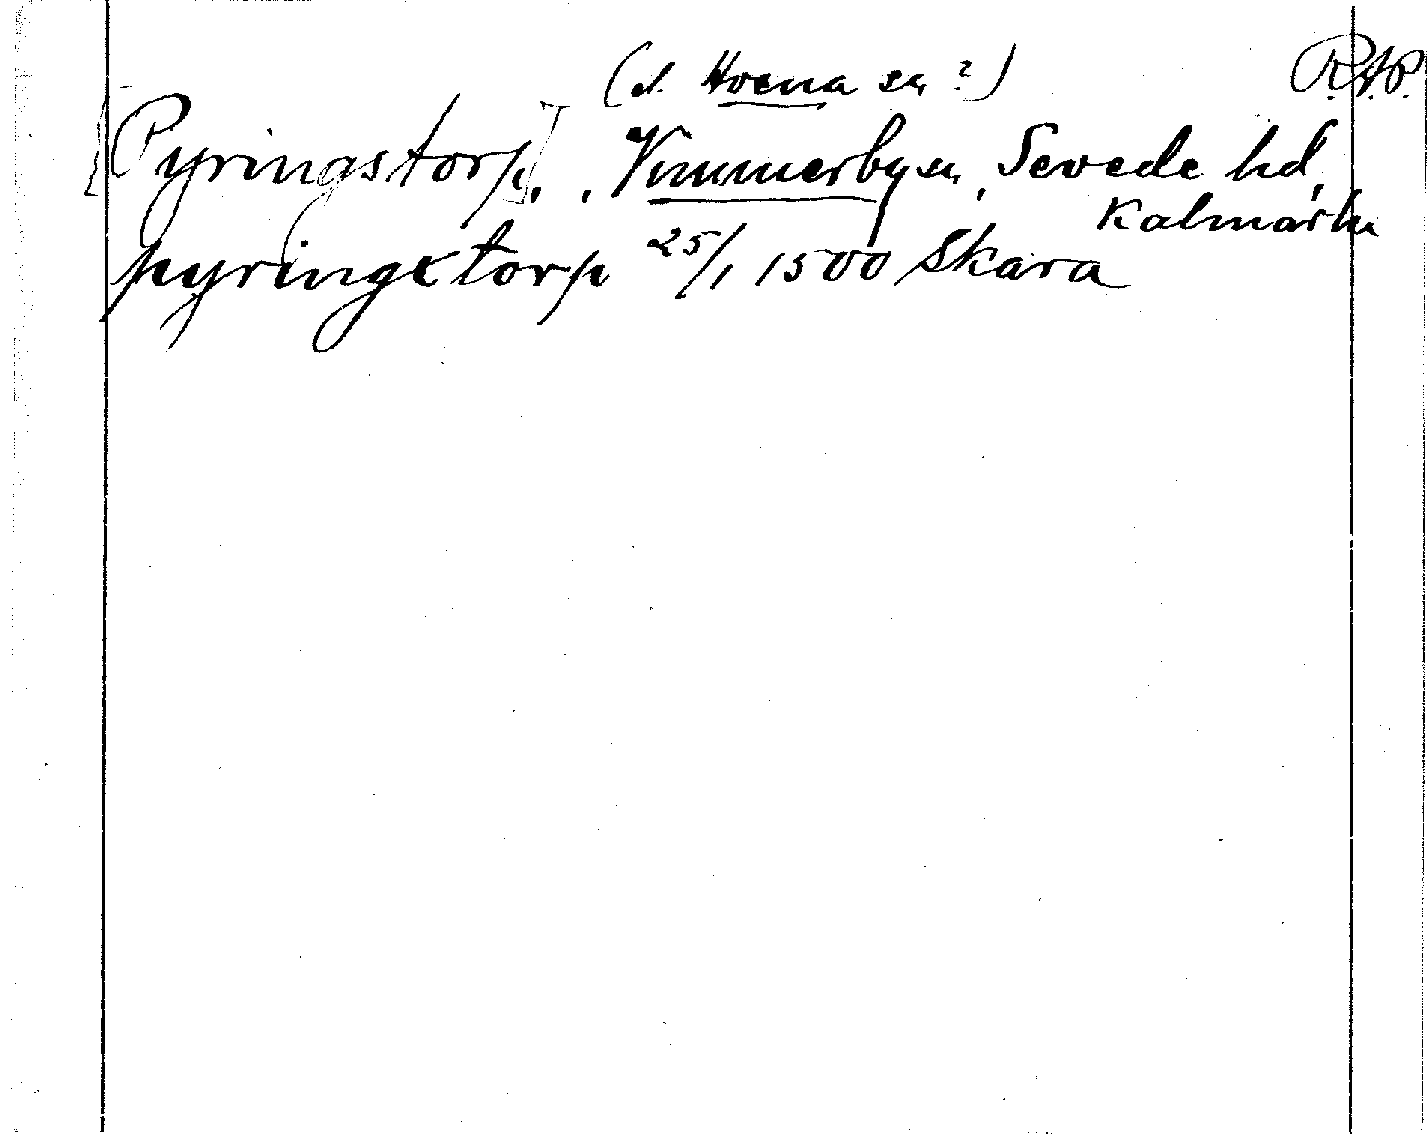 (el. Hvena sn ?) R.A.P.
[Pyringstorp], Vimmerby sn, Sevede hd,
Kalmar ln
pyringxtorp 25/1 1500 Skara